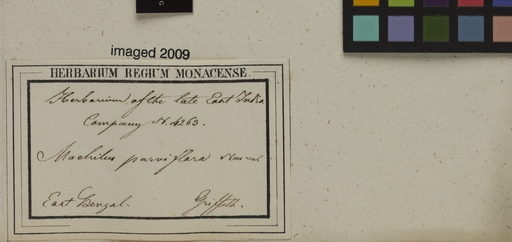 imaged 2009
HERBARIUM REGIUM MONACENSE.
Herbarium of the late East India
Company N. 4263.
Machilus parviflora
East Bengal. Griffith.